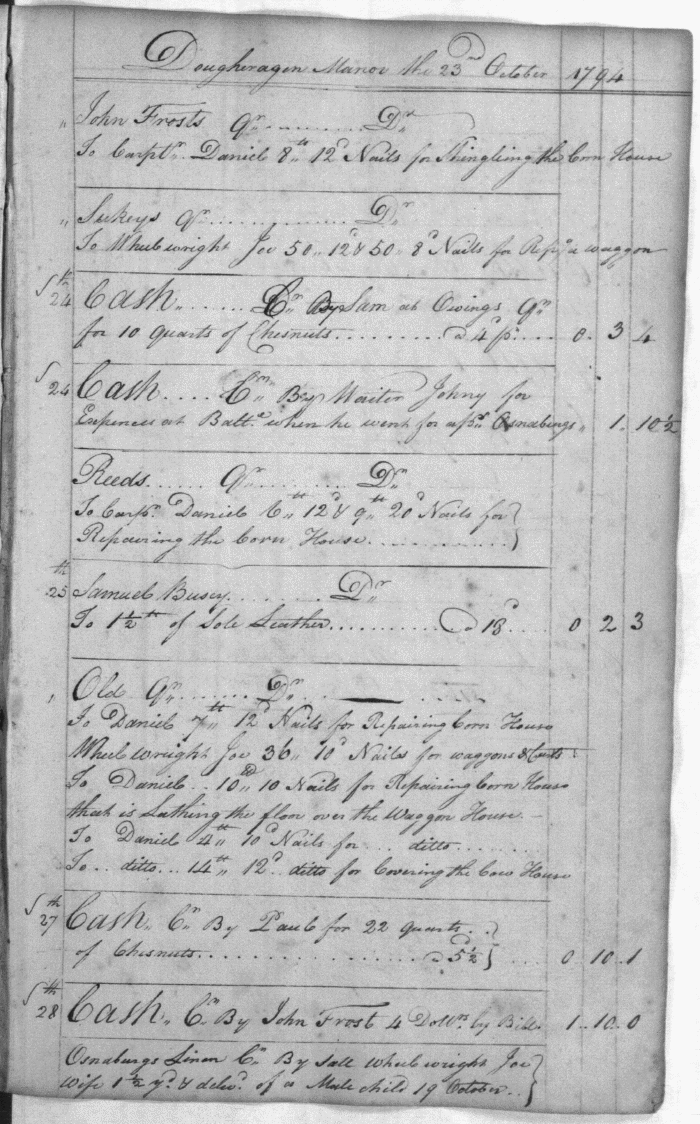 Dougheragen Manor the 23rd October 1794
" John Frosts Qr. ........ Dr
To Carptr. Daniel 8th" 12d Nails for Shingling the Corn House
" Sukeys Qr ........ Dr
To Wheelwright Joe 50" 12d & 50" 8d Nails for Repg a waggon
24th Cash" ...... Cr By Sam at Owings Qr
for 10 quarts of Chesnuts .......... @ 4d p. .... 0. 3 4
24 Cash .... Cr" By Waiter Johny for
Expences at Balte. when he went for a ps. Osnabrugs " 1. 10 1/2
Reeds ..... Qr ....... Dr
To Carpr. Daniel 6th" 12d & 9th" 20d Nails for }
Repairing the Corn House ........... }
25th Samuel Busey ........ Dr
To 1 1/2 th of Sole Leather .......... @ 18d .... 0 2 3
" Old Qr ...... Dr
To Daniel 7th" 12d Nails for Repairing Corn House
Wheelwright Joe 36" 10d Nails for waggons & Carts
To Daniel .. 10th" 10 Nails for Repairing Corn House
that is Lathing the floor over the Waggon House
To Daniel 4th" 10d Nails for ... ditto ......
To .. ditto ... 14th" 12d ditto for Covering the Cow House
27th Cash" Cr By Paul for 22 quarts .. }
of Chesnuts .......... @ 5d 1/2 } .... 0 10. 1
28th Cash" Cr By John Frost 4 Dollrs. by Bill. 1. 10. 0
Osnaburgs Linen Cr By Sall Wheelwright Joe }
wife 1 1/2 yd. & deld. of a Male child 19 October .. }